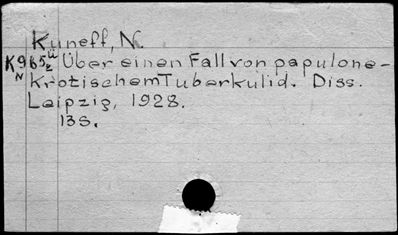 Kuneff, N.
K965ü Über einen Fall von papulone-
N 2 krotischem Tuberkulid. Diss.
Leipzig, 1928.
13s.